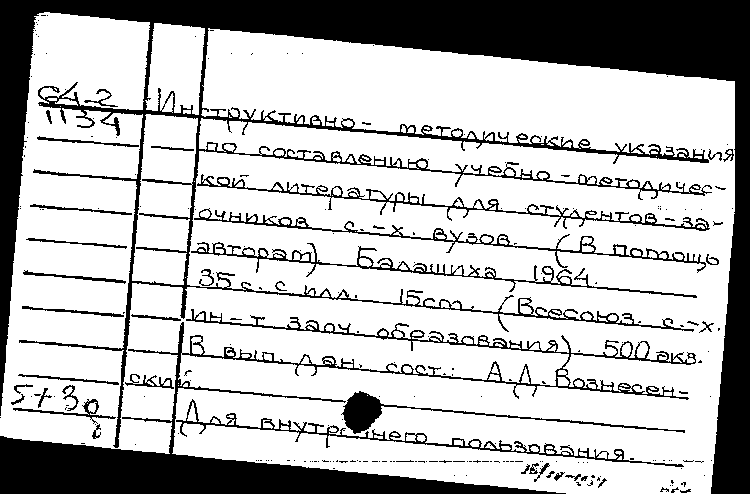 64-2
1134
Инструктивно-методические указания
по составлению учебно-методичес-
кой литературы для студентов-за-
очников с.-х. вузов. (В помощь
авторам). Балашиха, 1964.
35 с. с илл. 15 cm. (Всесоюз. с.-х.
ин-т заоч. образования). 500 экз.
В вып. дан. сост.: А.Д. Вознесен-
ский.
Для внутреннего пользования.